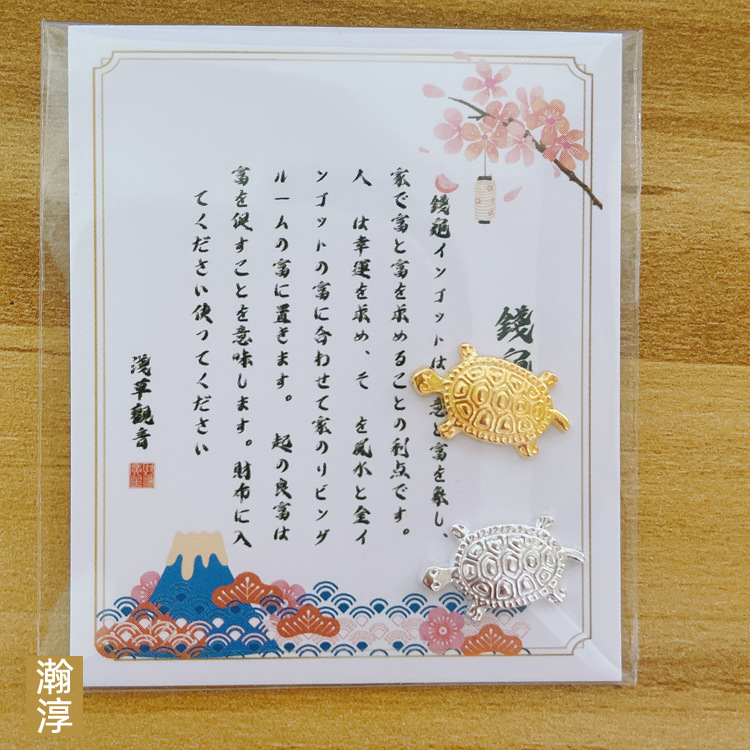 錢龜
錢龜インゴットは
意と富を象し、
家で富と富を求めることの利点です。
人 は幸運を求め、そ を風水と金イ
ンゴットの富に合わせて家のリビング
ルームの富に置きます。 起の良富は
富を促すことを意味します。財布に入
てください使ってください
淺草觀音
瀚淳